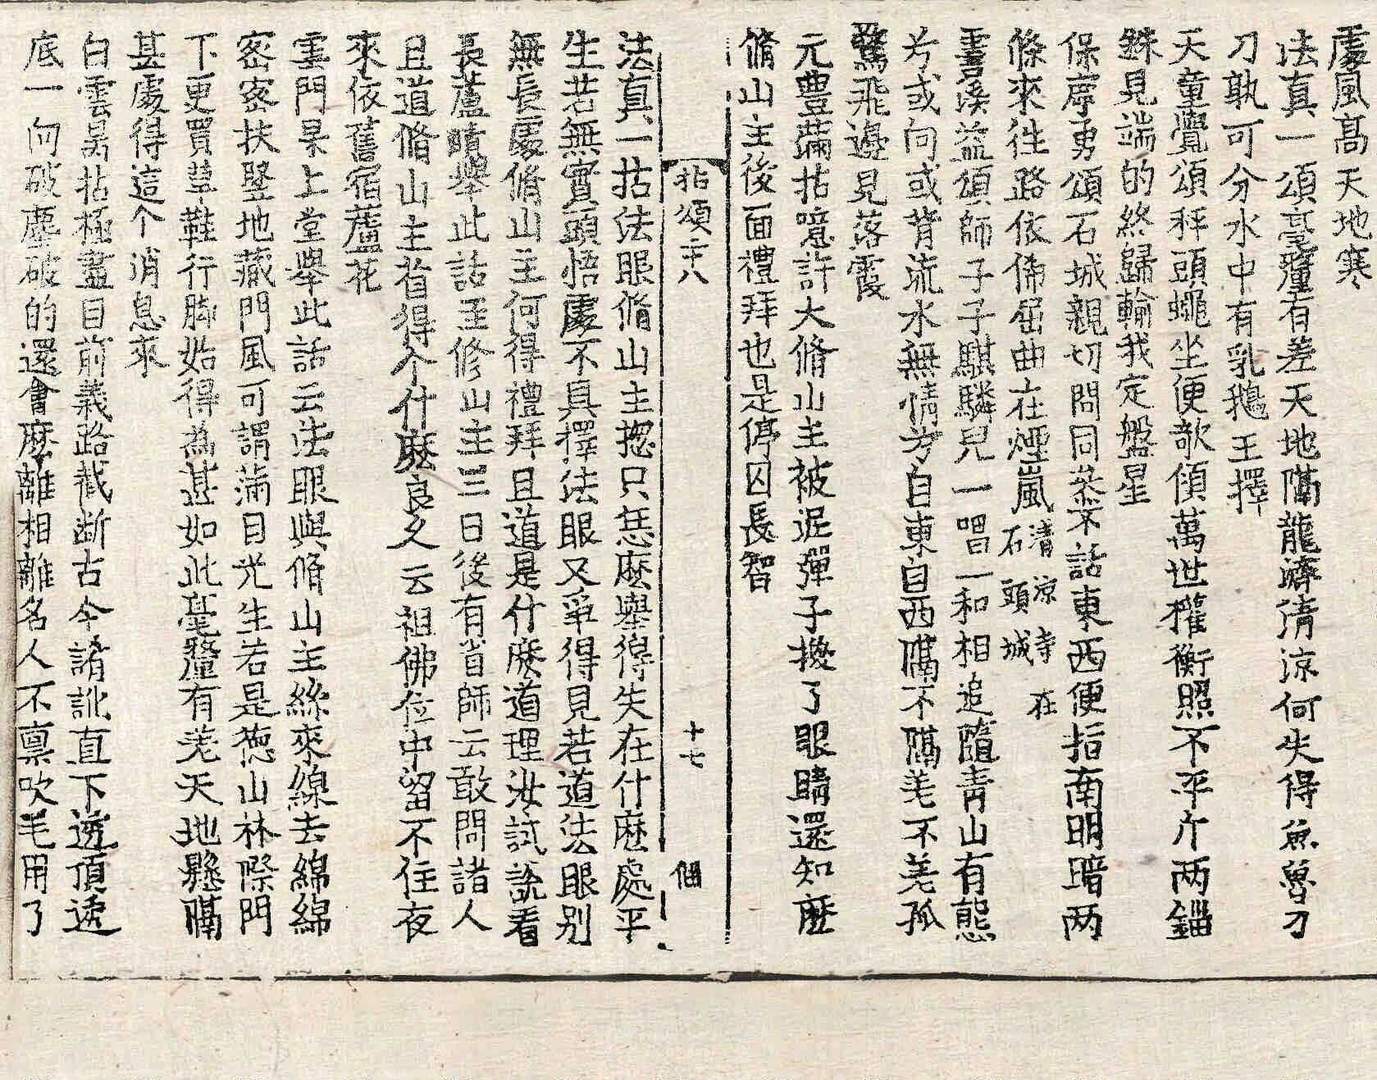 處風高天地寒
法真一頌毫釐有差天地隔龍濟清涼何失得魚魯刁
刀孰可分水中有乳鵝王擇
天童覺頌秤頭蠅坐便欹傾萬世權衡照不平斤两錙
銖見端的終歸輸我定盤星
保寧勇頌石城親切問同叅不話東西便指南明暗两
條來往路依俙屈曲在煙嵐清涼寺在石頭城
霅溪益頌師子子騏驎兒一唱一和相追隨青山有態
兮或向或背流水無情兮自東自西隔不隔羌不羌孤
鶩飛邊見落霞
元豊滿拈噫許大脩山主被泥彈子換了眼睛還知麽
脩山主後面禮拜也是停囚長智
拈頌二八 十七
法真一拈法眼脩山主揔只恁麽舉得失在什麽處平
生若無實頭悟處不具擇法眼又爭得見若道法眼别
無長處脩山主何得禮拜且道是什麽道理汝試說看
長蘆賾舉此話至修山主三日後有省師云敢問諸人
且道脩山主省得个什麽良久云祖佛位中留不住夜
來依舊宿蘆花
雲門杲上堂舉此話云法眼與脩山主絲來線去綿綿
密密扶竪地藏門風可謂滿目光生若是德山林際門
下更買草鞋行脚始得為甚如此毫釐有差天地懸隔
甚處得這个消息來
白雲昺拈極盡目前義路截断古今誵訛直下透頂透
底一向破塵破的還會麽離相離名人不禀吹毛用了